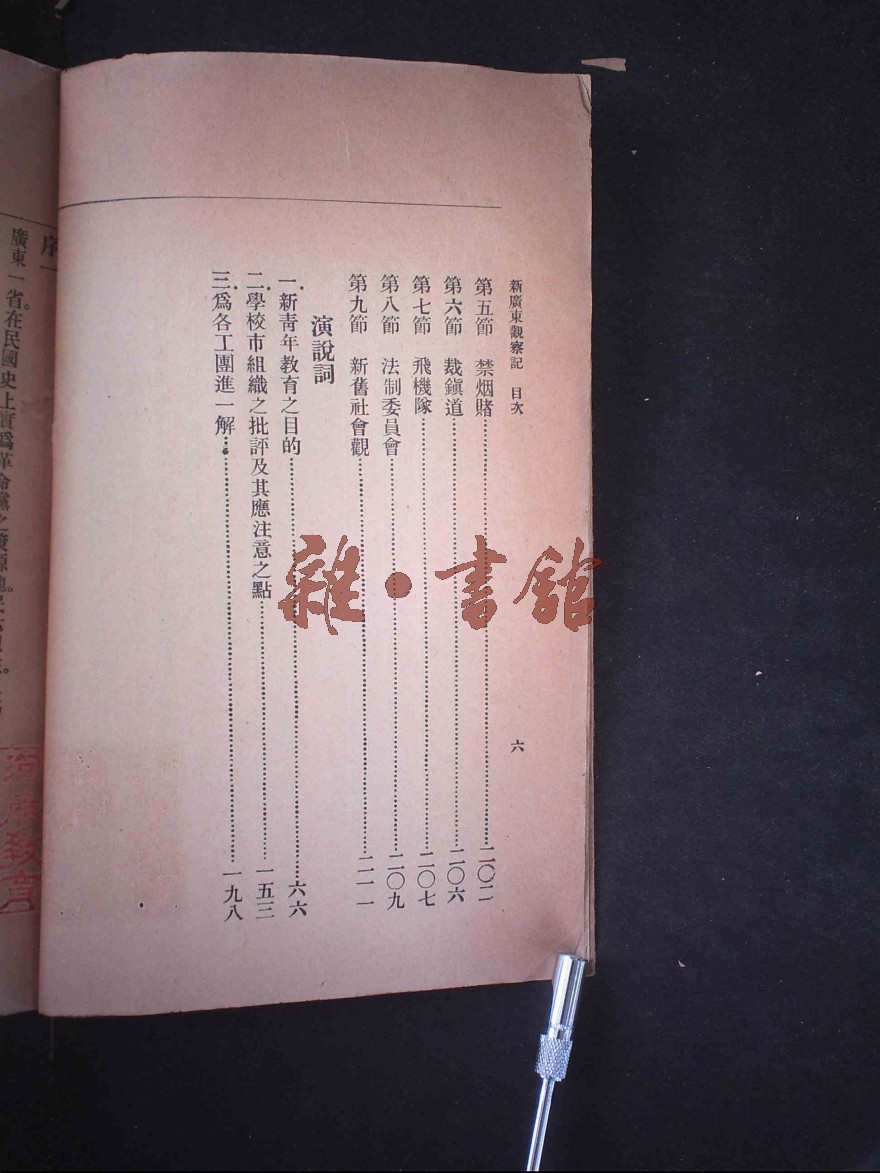 新廣東觀察記 目次 六
第五節 禁烟賭……二〇二
第六節 裁鎭道……二〇六
第七節 飛機隊……二〇七
第八節 法制委員會……二〇九
第九節 新舊社會觀……二一一
演說詞
一.新靑年教育之目的……六六
二.學校市組織之批評及其應注意之點……一五三
三.爲各工團進一解……一九八
雜·書館
序一
廣東一省。在民國史上實爲革命黨之發源地。
教育